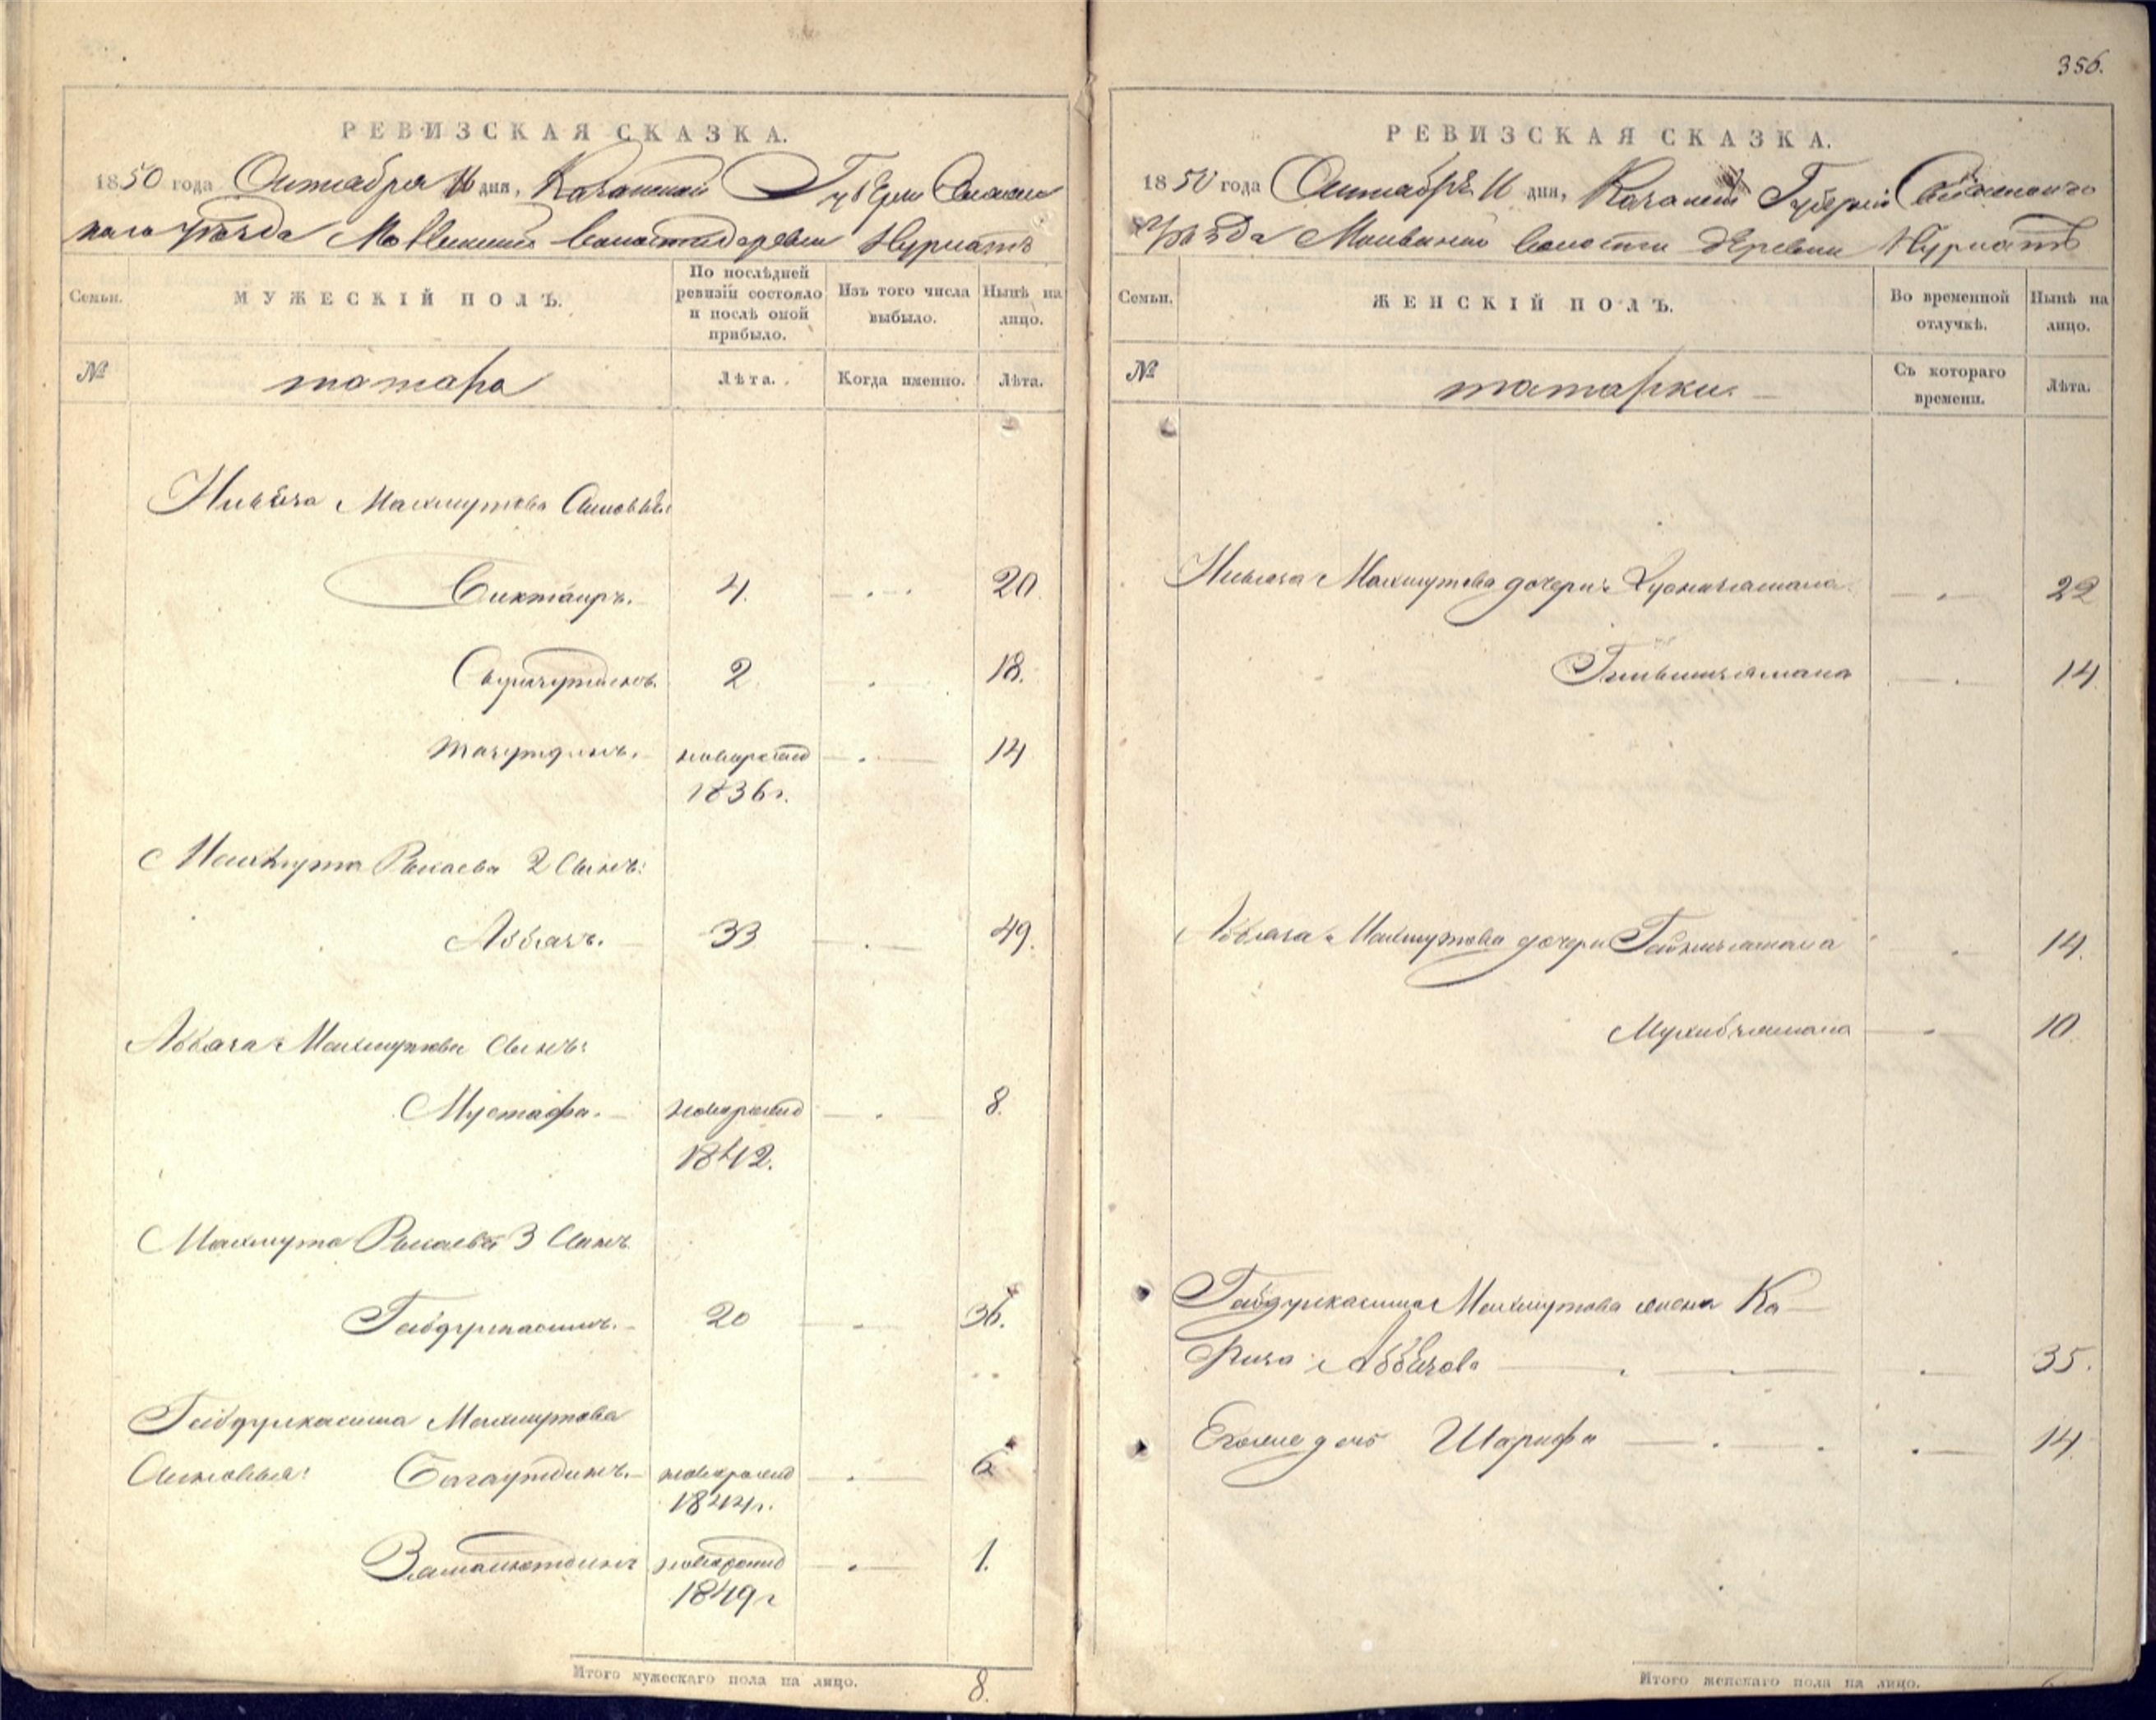 РЕВИЗСКАЯ СКАЗКА.
1850 года Октября 11 дня, Казанской Губерни Свияж
скаго уѣзда Маквинской Волости деревни Нурлатъ
Семьи.
МУЖЕСКІЙ ПОЛЪ.
По послѣдней
ревизіи состояло
и послѣ оной
прибыло.
Изъ того числа
выбыло.
Нынѣ на
лицо.
№
татара
Лѣта.
Когда именно.
Лѣта.
Махмутова Сыновья
Биктаиръ. 4. 20.
2 18.
новорожд 14
1836 г.
Махмута Рысаева 2 Сынъ:
Аббязъ. 33 49.
Аббяза Махмутова Сынъ:
Мустафа. новорожд 8.
1842.
Махмута Рысаева 3 Сынъ
Габдулкасимъ. 20 36.
Габдулкасима Махмутова
Сыновья: Багаутдинъ. новорожд 6
1844 г.
новорожд 1.
1849 г
Итого мужескаго пола на лицо. 8.
356.
РЕВИЗСКАЯ СКАЗКА.
1850 года Октября 11 дня, Казанской Губерніи Свіяжскаго
Уѣзда Маквинской Волости деревни Нурлатъ
Семьи.
ЖЕНСКІЙ ПОЛЪ.
Во временной
отлучкѣ.
Нынѣ на
лицо.
№
татарки.
Съ котораго
времени.
Лѣта.
Махмутова дочери: Хуснизямала 22
14
Аббяза Махмутова дочери Гайнизямала 14.
Мухибзямала 10.
Габдулкасима Махмутова жена Ка-
Аббязова 35.
Ево же дочь Шарифа 14.
Итого женскаго пола на лицо.